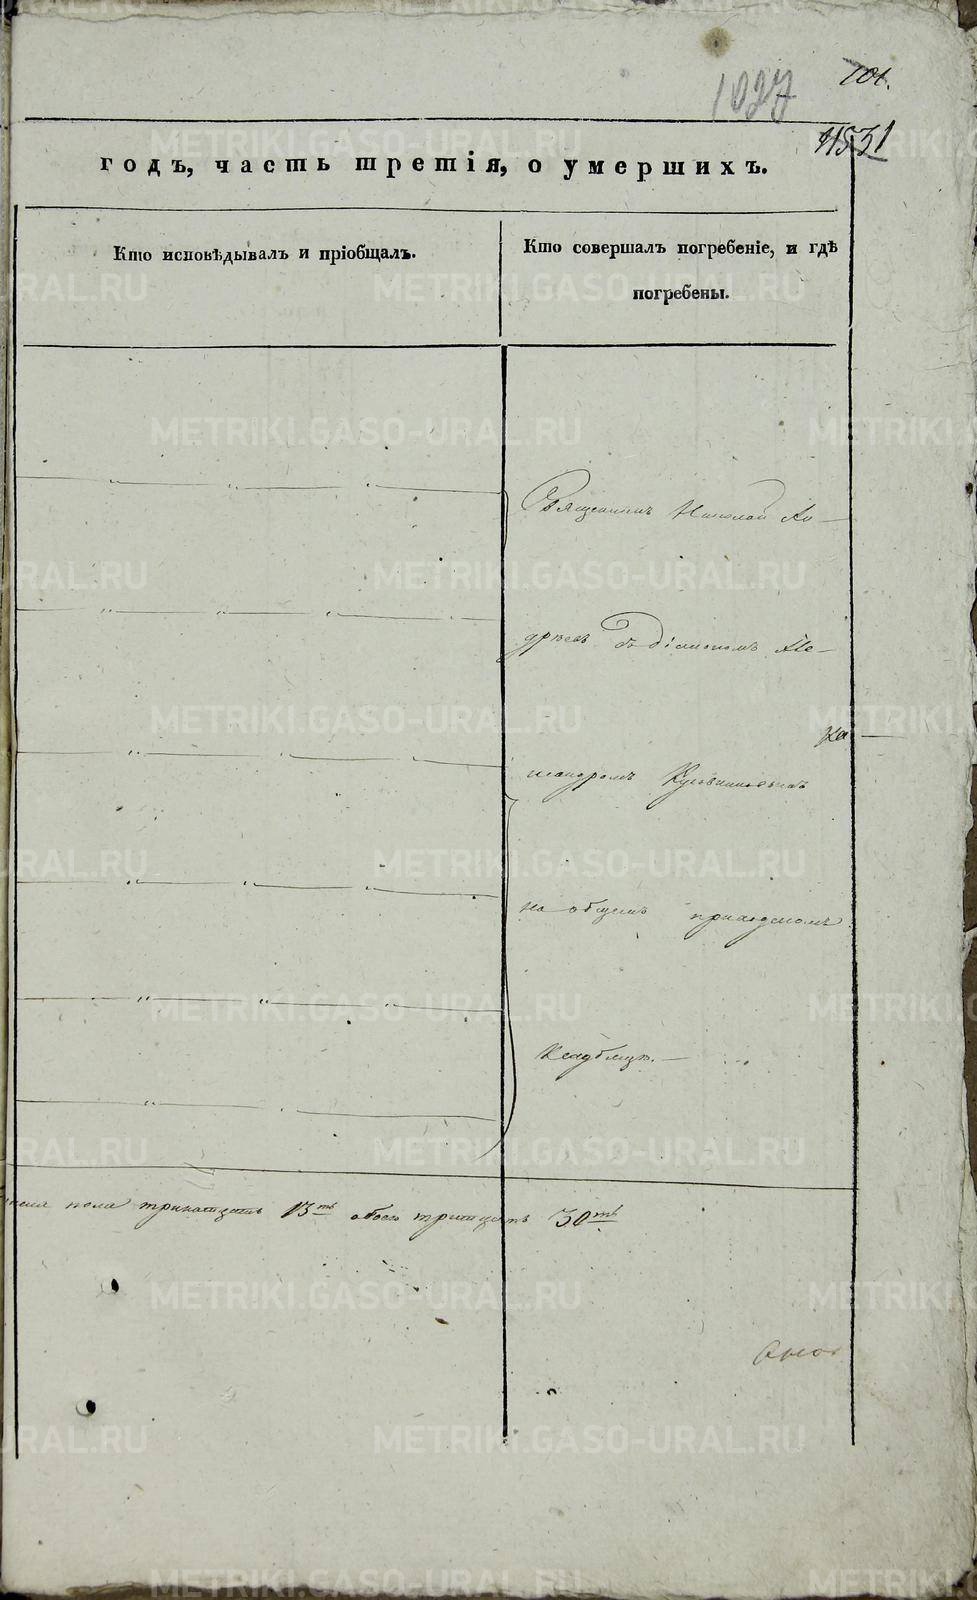 101.
1027
1531
годъ, часть третія, о умершихъ.
Кто исповѣдывалъ и пріобщалъ.
Кто совершалъ погребеніе, и гдѣ
погребены.
Священникъ Николай Ан-
дреевъ съ діакономъ Але-
ксандромъ
на общемъ приходскомъ
Кладбищѣ.
пола тринатцать 13ть обоего тритцать 30ть
METRIKI.GASO-URAL.RU